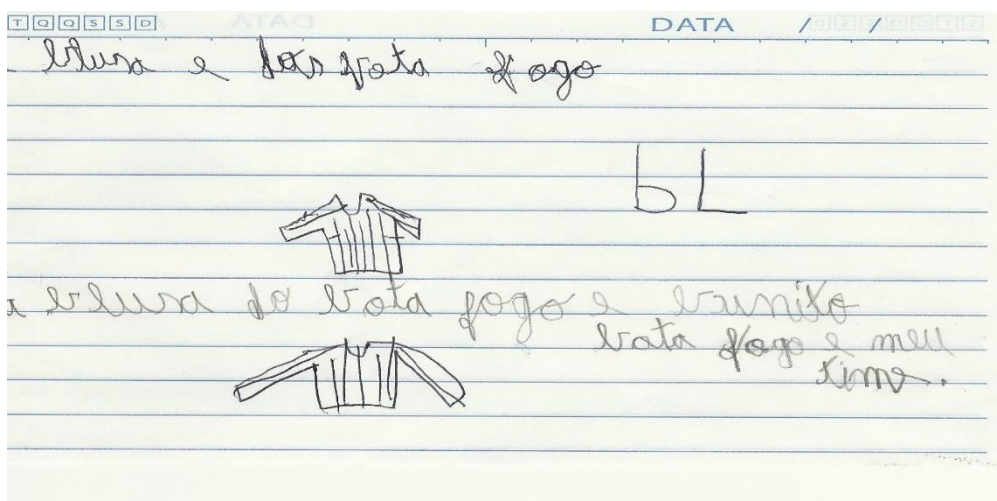 T Q Q S S D DATA / /
blusa e
fogo
bL
a blusa do bota fogo e bunito
bota fogo e meu
time.